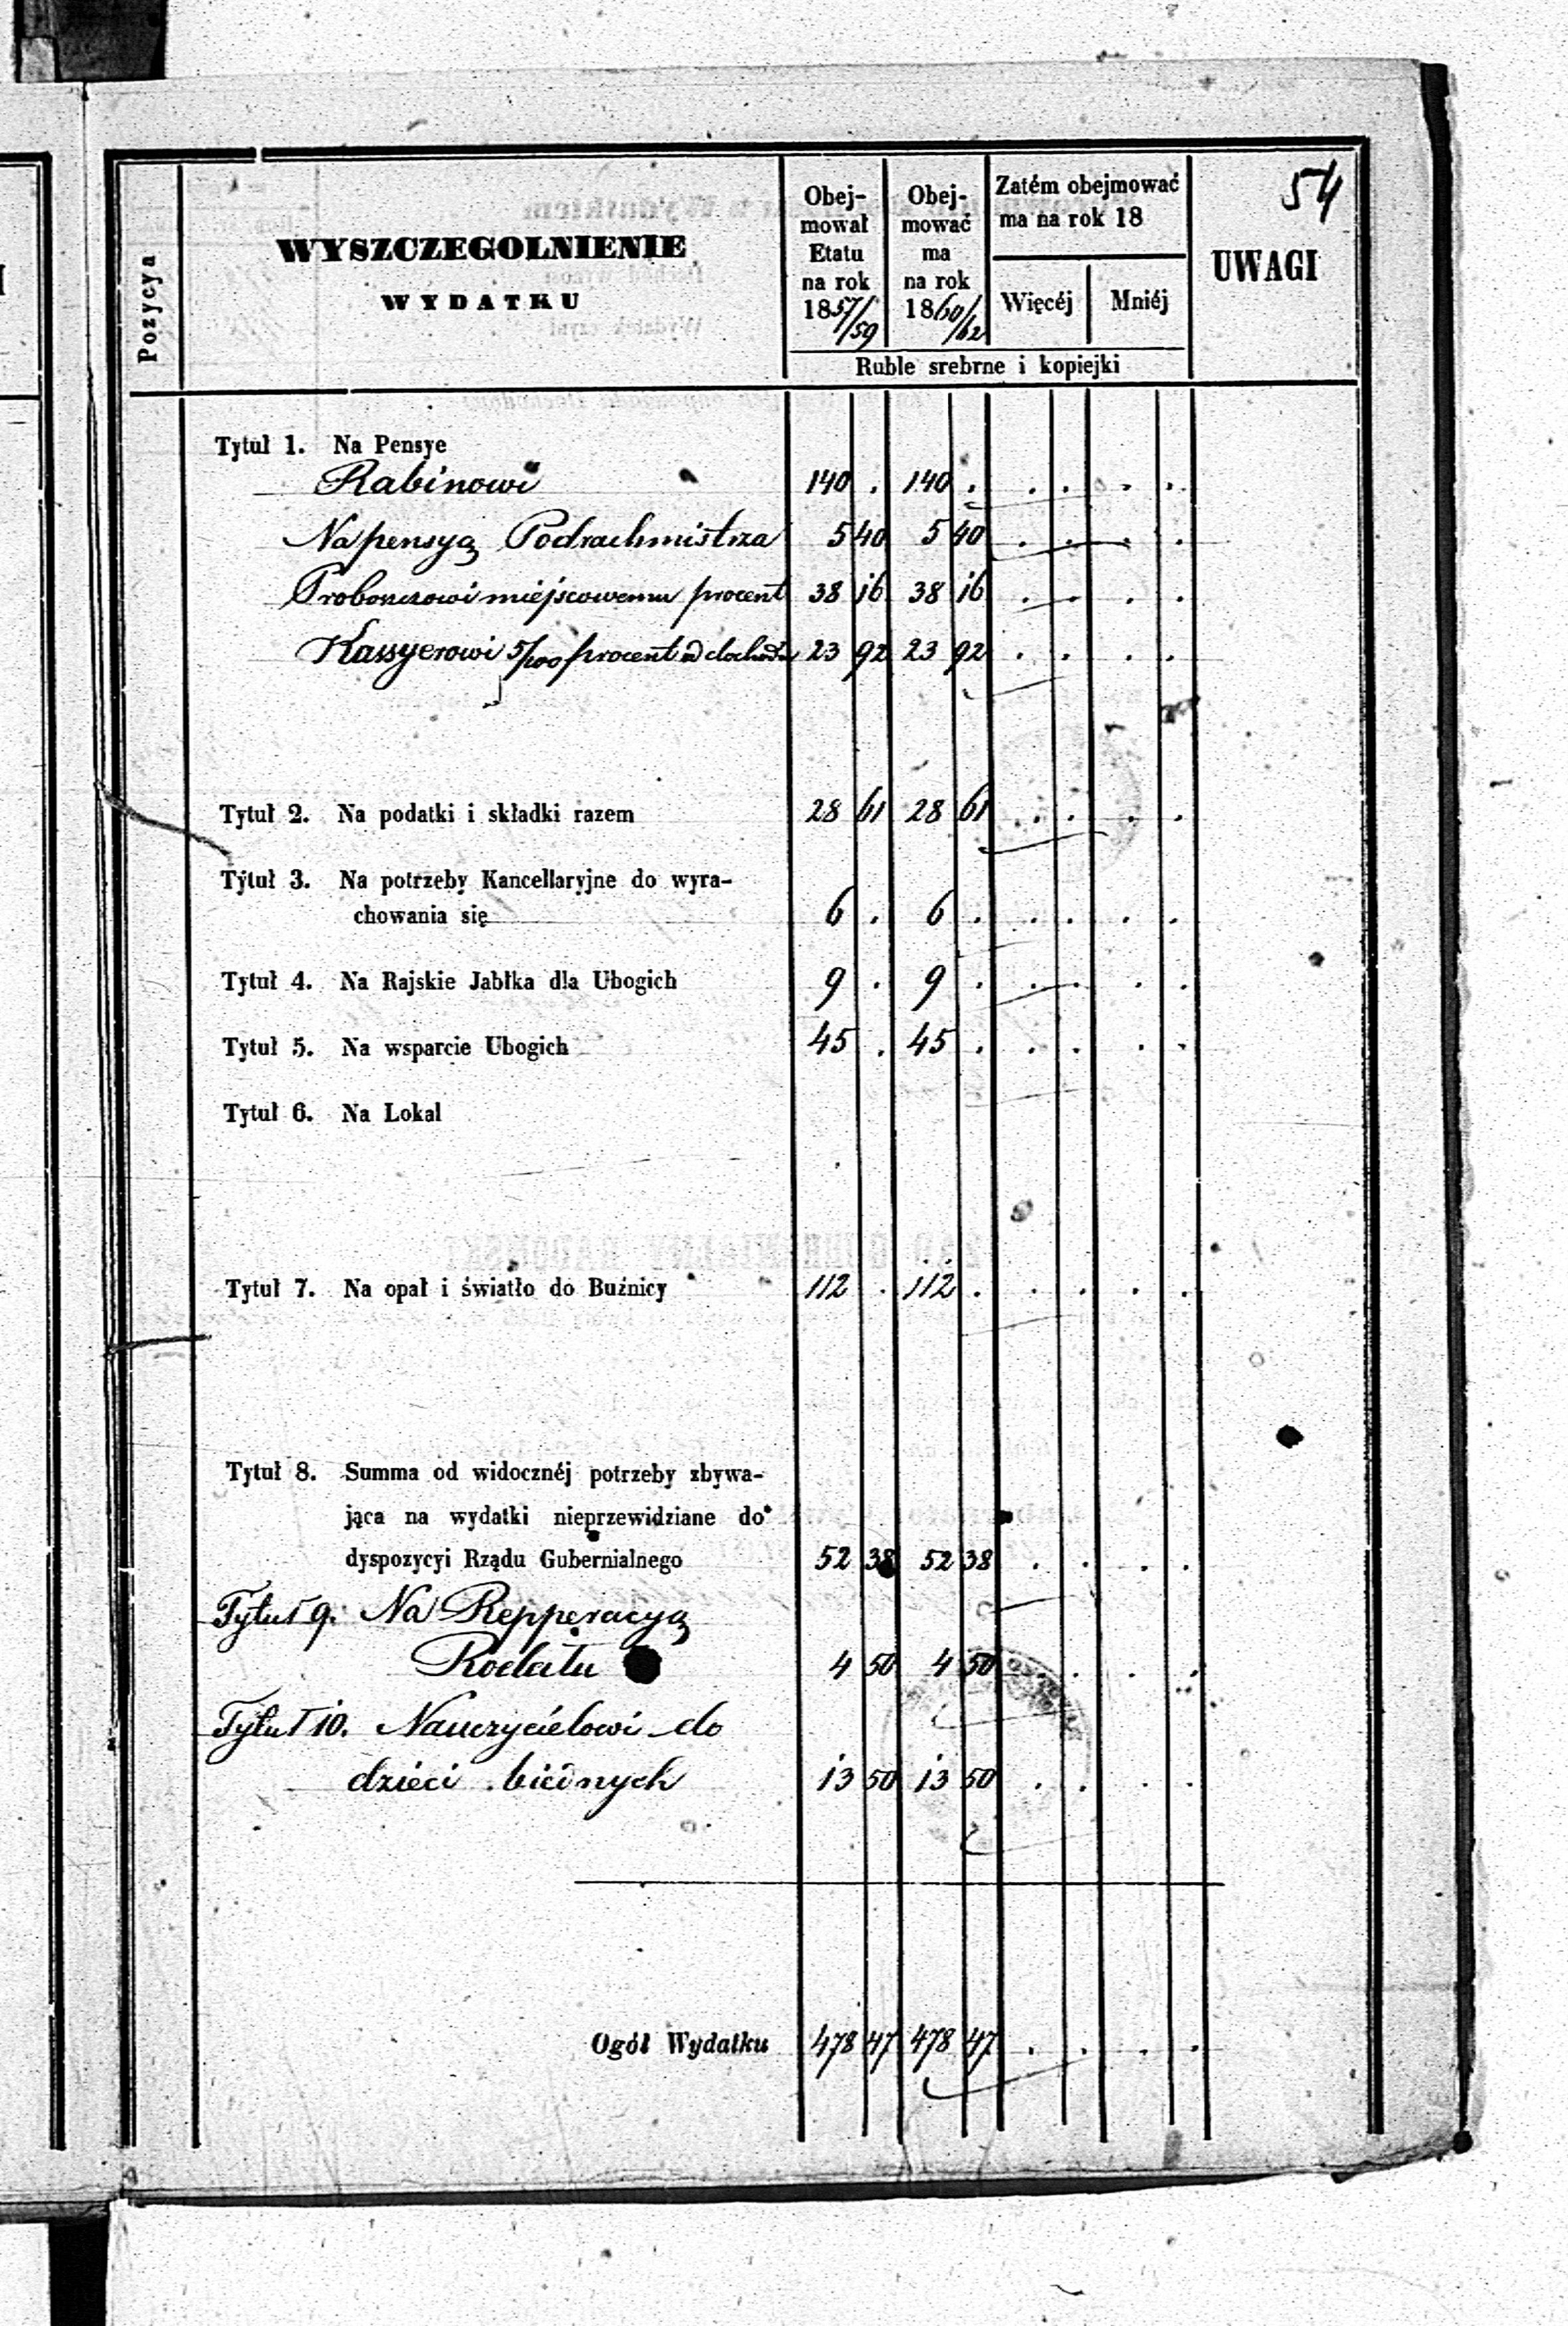 54
Pozycya
WYSZCZEGOLNIENIE
WYDATKU
Obej-
mował
Etatu
na rok
1857/59
Obej-
mować
ma
na rok
1860/62
Zatém obejmować
ma na rok 18
Więcéj Mniéj
UWAGI
Ruble srebrne i kopiejki
Tytuł 1. Na Pensye
Rabinowi 140 . 140 . . . . .
Na pensyą Podrachmistrza 5 40 5 40 . . . .
Proboszczowi miejscowemu procent 38 16 38 16 . . . .
Kassyerowi 5/100 procent od dochodu 23 92 23 92 . . . .
Tytuł 2. Na podatki i składki razem 28 61 28 61 . . . .
Tytuł 3. Na potrzeby Kancellaryjne do wyra-
chowania się 6 . 6 . . . . .
Tytuł 4. Na Rajskie Jabłka dla Ubogich 9 . 9 . . . . .
Tytuł 5. Na wsparcie Ubogich 45 . 45 . . . . .
Tytuł 6. Na Lokal
Tytuł 7. Na opał i światło do Buźnicy 112 . 112 . . . . .
Tytuł 8. Summa od widocznéj potrzeby zbywa-
jąca na wydatki nieprzewidziane do
dyspozycyi Rządu Gubernialnego 52 38 52 38 . . . .
Tytuł 9. Na Repperacyą
Rodału 4 50 4 50 . . . .
Tytuł 10. Nauczycielowi do
dzieci biednych 13 50 13 50 . . . .
Ogół Wydatku 478 47 478 47 . . . .